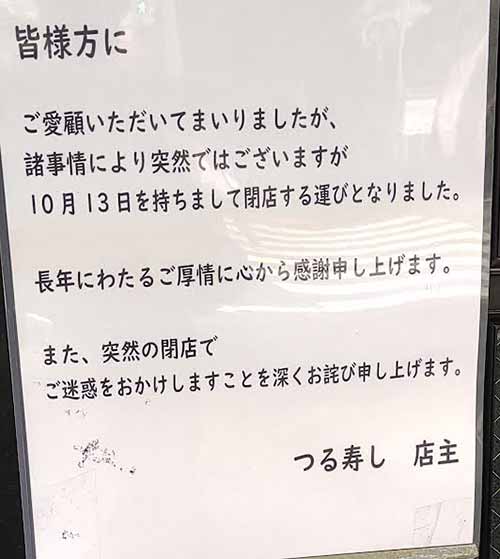 皆様方に
ご愛顧いただいてまいりましたが、
諸事情により突然ではございますが
10月13日を持ちまして閉店する運びとなりました。
長年にわたるご厚情に心から感謝申し上げます。
また、突然の閉店で
ご迷惑をおかけしますことを深くお詫び申し上げます。
つる寿し　店主